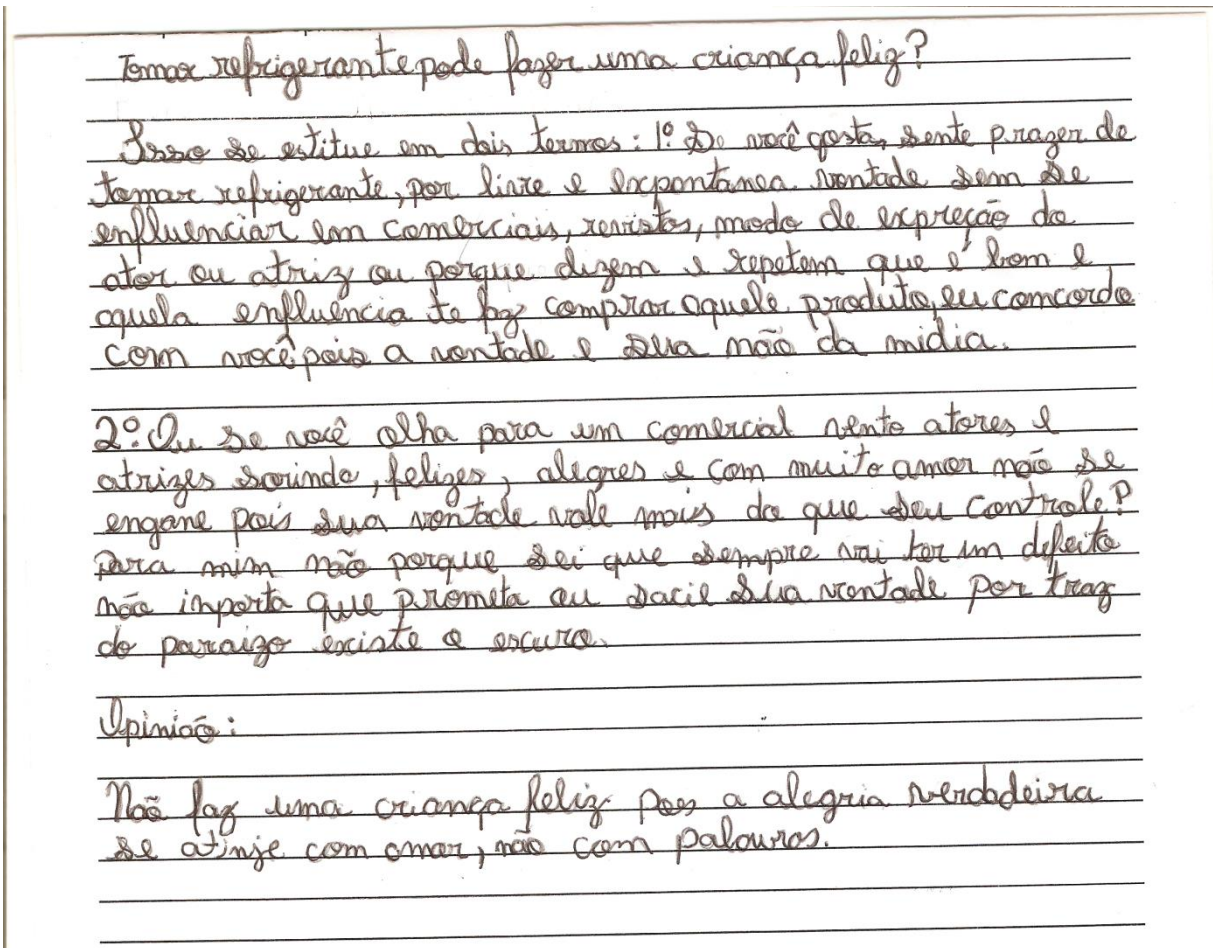 Tomar refrigerante pode fazer uma criança feliz?
Isso se estitue em dois termos: 1º. Se você gosta, sente prazer de
tomar refrigerante, por livre e expontanea vontade sem se
enfluenciar em comerciais, revistas, modo de expreção do
ator ou atriz ou porque dizem e repetem que é bom e
aquela enfluência te faz comprar aquele produto, eu comcordo
com você pois a vontade e sua não da midia.
2º. Ou se você olha para um comercial vento atores e
atrizes sorindo, felizes, alegres e com muito amor não se
engane pois sua vontade vale mais do que seu controle?
Para mim não porque sei que sempre vai ter um defeito
não inporta que prometa ou sacie sua vontade por traz
do paraizo existe o escuro.
Opinião:
Não faz uma criança feliz pois a alegria verdadeira
se atinje com amar, não com palavras.